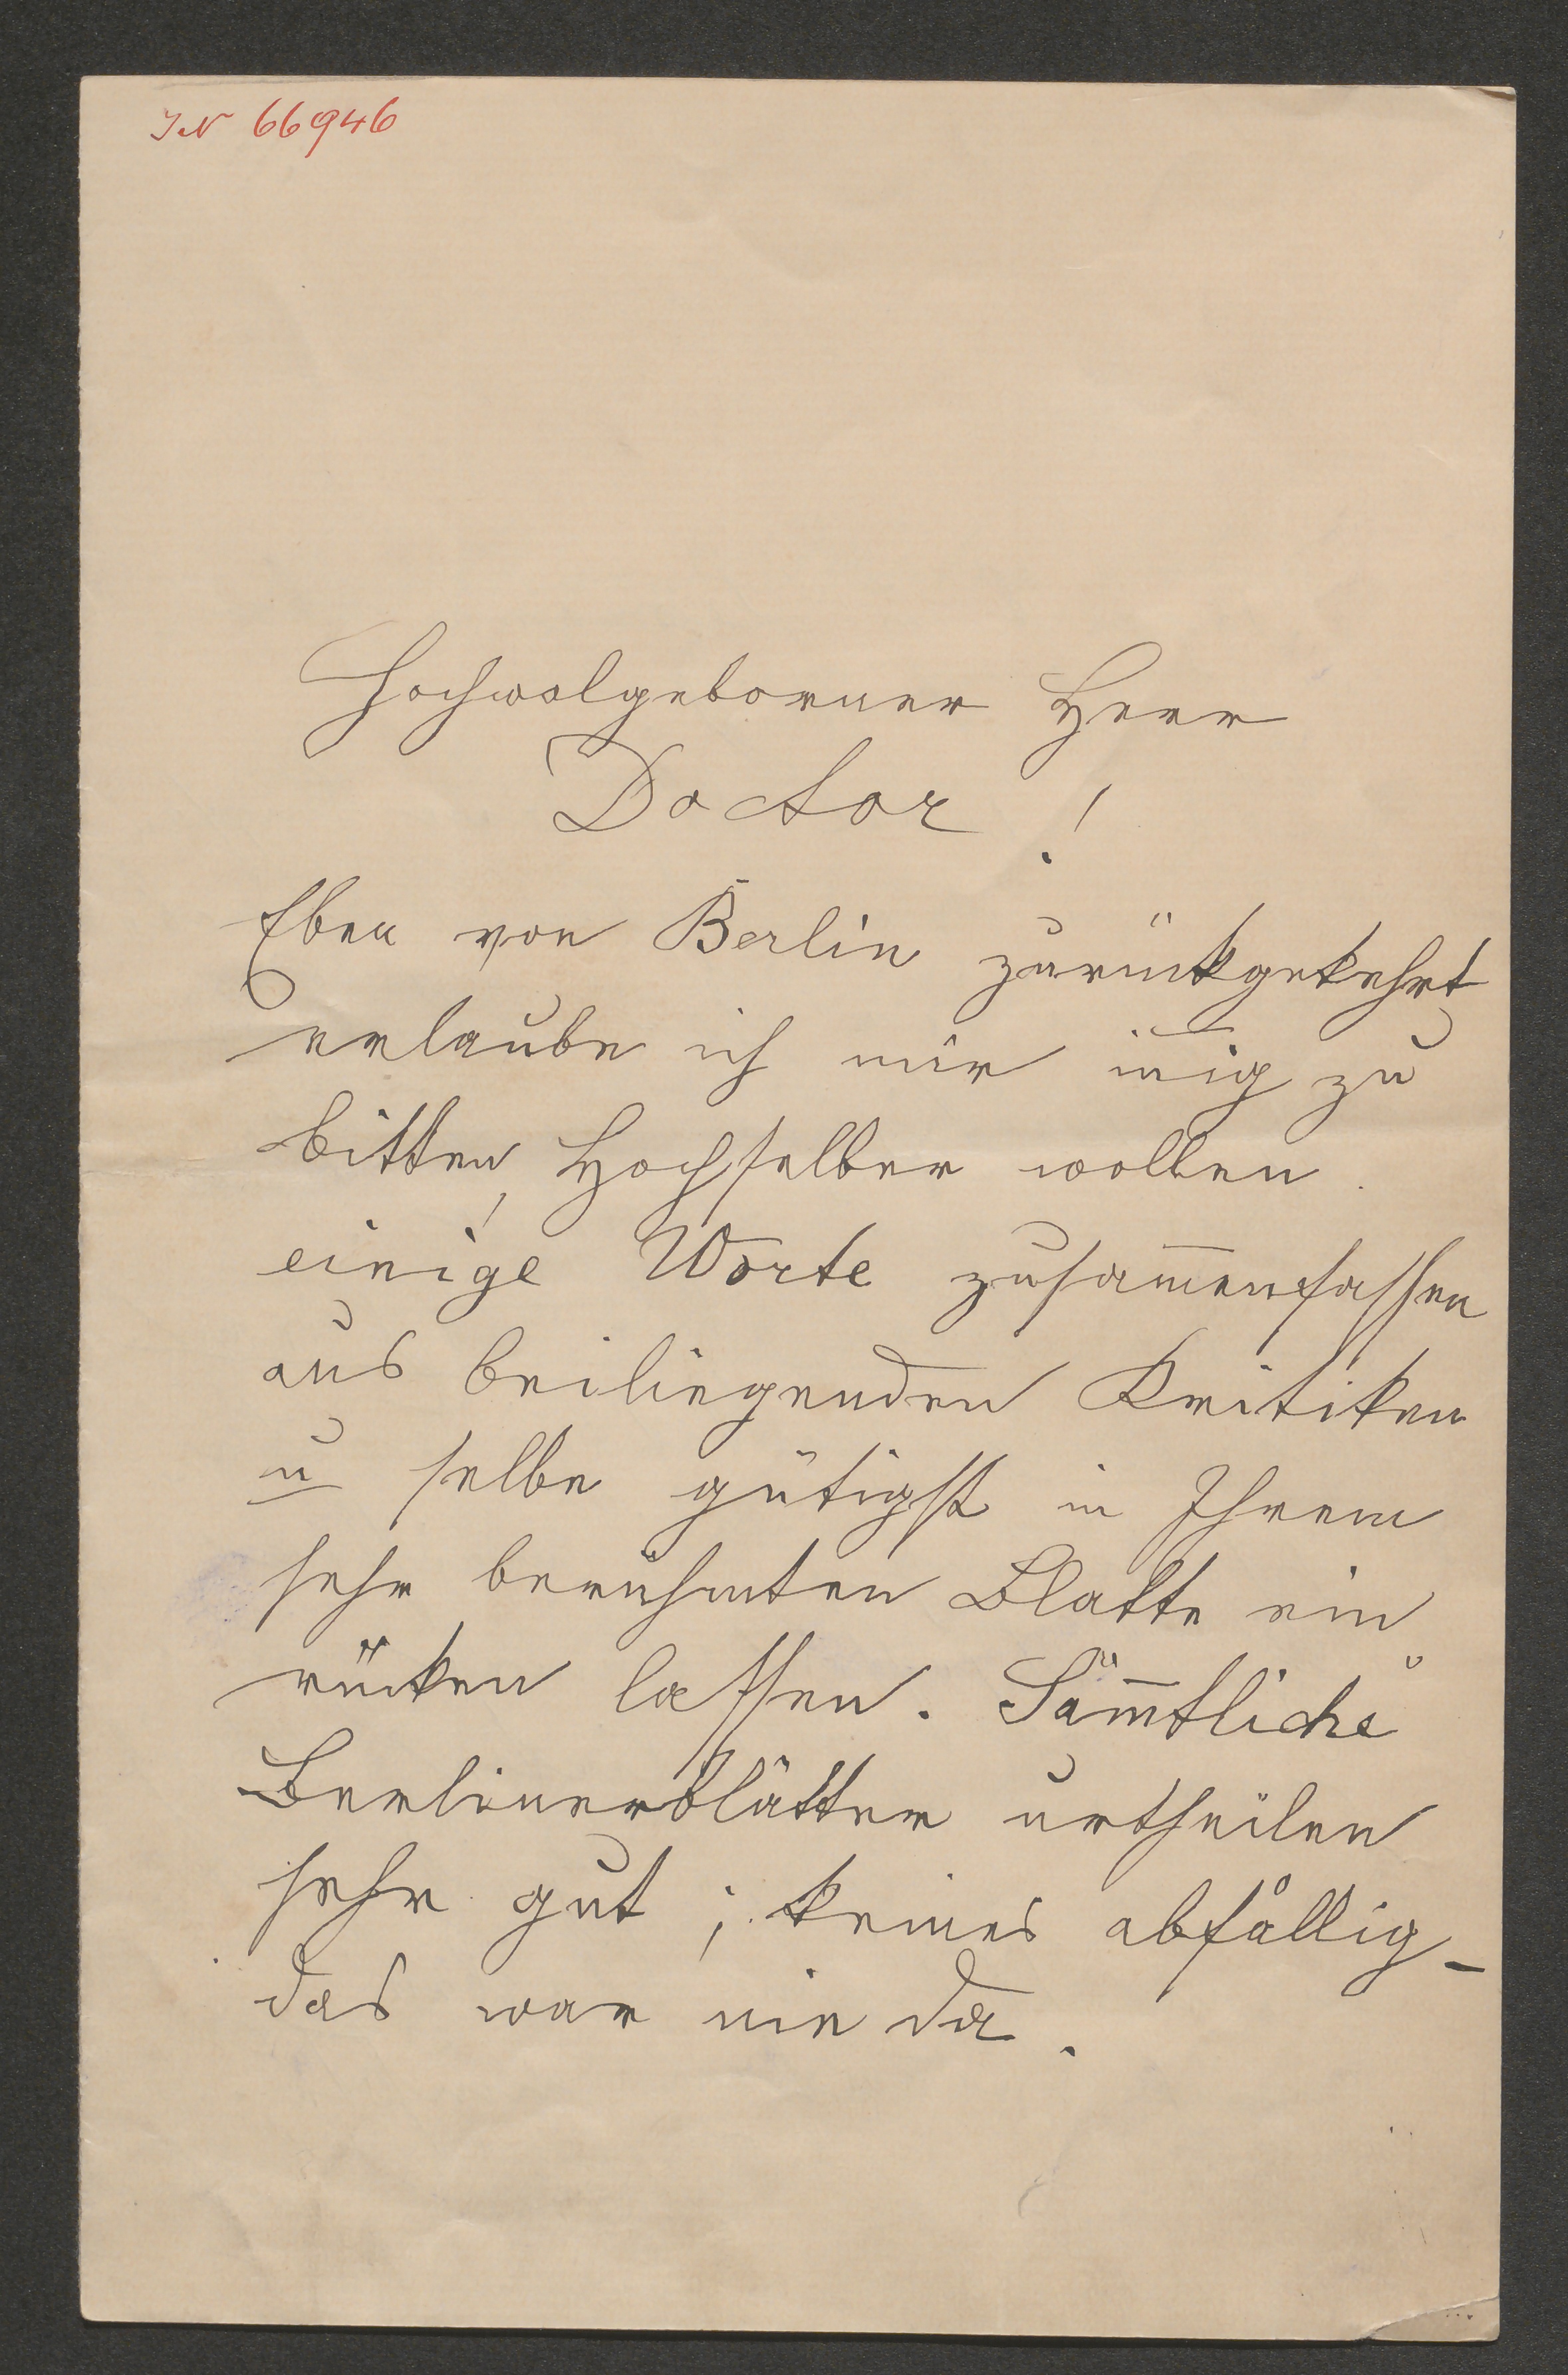 IN 66946
Hochwolgeborner Herr
Doctor !
Eben von Berlin zurückgekehrt
erlaube ich mir in̅ig zu
bitten, Hochselber wollen
einige Worte zusam̅enfassen
aus beiliegenden Kritiken
u selbe gütigst in Ihrem
sehr berühmten Blatte ein
rücken lassen. Säm̅tliche
Berlinerblätter urtheilen
sehr gut ; keines abfällig –
das war nie da.